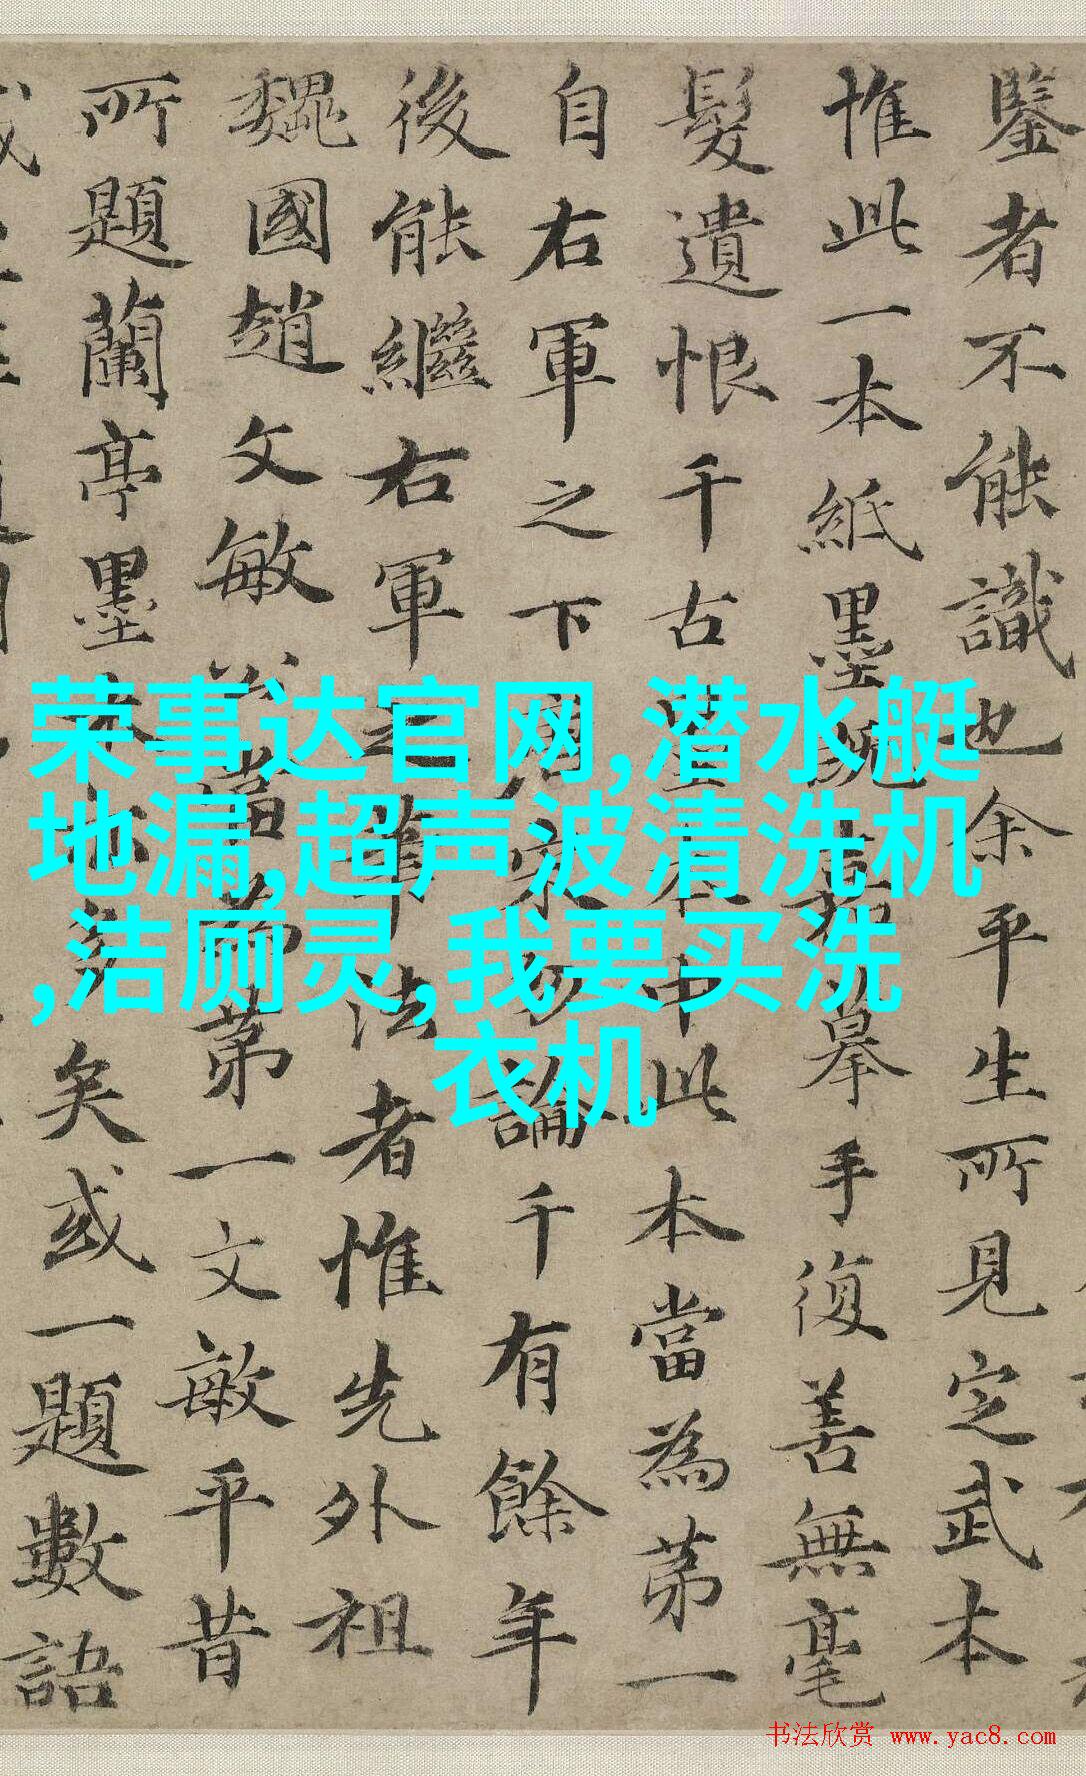 鑒者不能識也余平生所見定武本
惟此一本紙墨既摹手復善無毫
髮遺恨千古墨本中此本當為第一
自右軍之下唐宋勿論千有餘年
後能繼右軍之筆法者惟先外祖
魏國趙文敏公當為第一文敏平昔
所題蘭亭墨本矣或一題數語
荣事达官网,潜水艇
地漏,超声波清洗机
,洁厕灵,我要买洗
衣机
书法欣赏 www.yac8.com